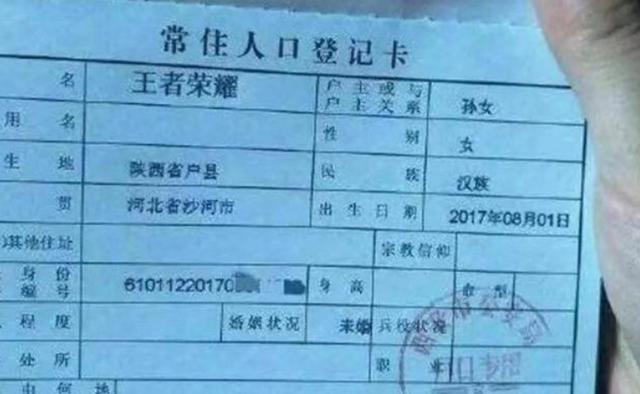 常住人口登记卡
名 王者荣耀 户主或与户主关系 孙女
用名 性别 女
生地 陕西省户县 民族 汉族
贯 河北省沙河市 出生日期 2017年08月01日
其他住址 宗教信仰
身份编号 6101122017 身高 血型
程度 婚姻状况 未婚 兵役状况
处所 职业
何地
西安市公安局
户口专用